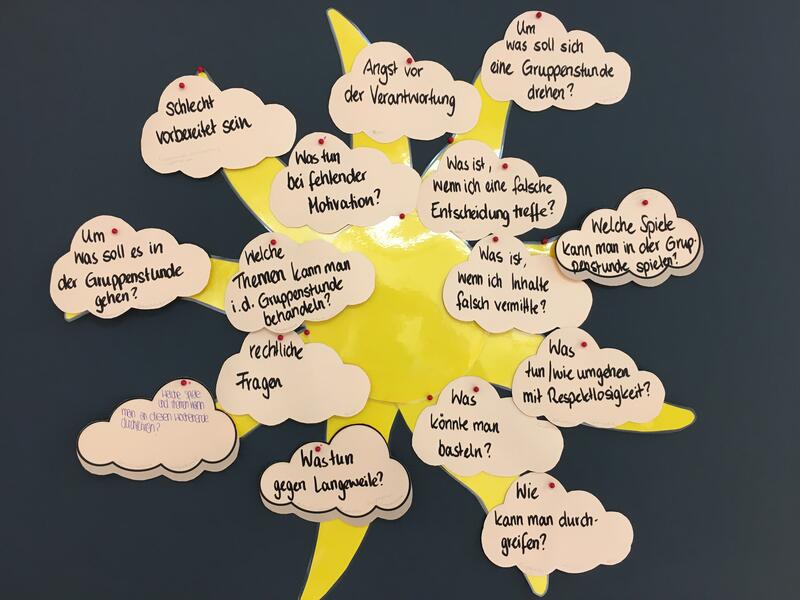 Um
was soll sich
eine Gruppenstunde
drehen?
Angst vor
der Verantwortung
Schlecht
vorbereitet sein
Was tun
bei fehlender
Motivation?
Was ist,
wenn ich eine falsche
Entscheidung treffe?
Welche Spiele
kann man in der Grup-
penstunde spielen?
Um
Was soll es in
der Gruppenstunde
gehen?
Welche
Themen kann man
i.d. Gruppenstunde
behandeln?
Was ist,
wenn ich Inhalte
falsch vermittle?
rechtliche
Fragen
Was
tun/wie umgehen
mit Respektlosigkeit?
Welche Spiele
und Themen kann
man an diesen Wochenende
durchführen?
Was
könnte man
basteln?
Was tun
gegen Langeweile?
Wie
kann man durch-
greifen?